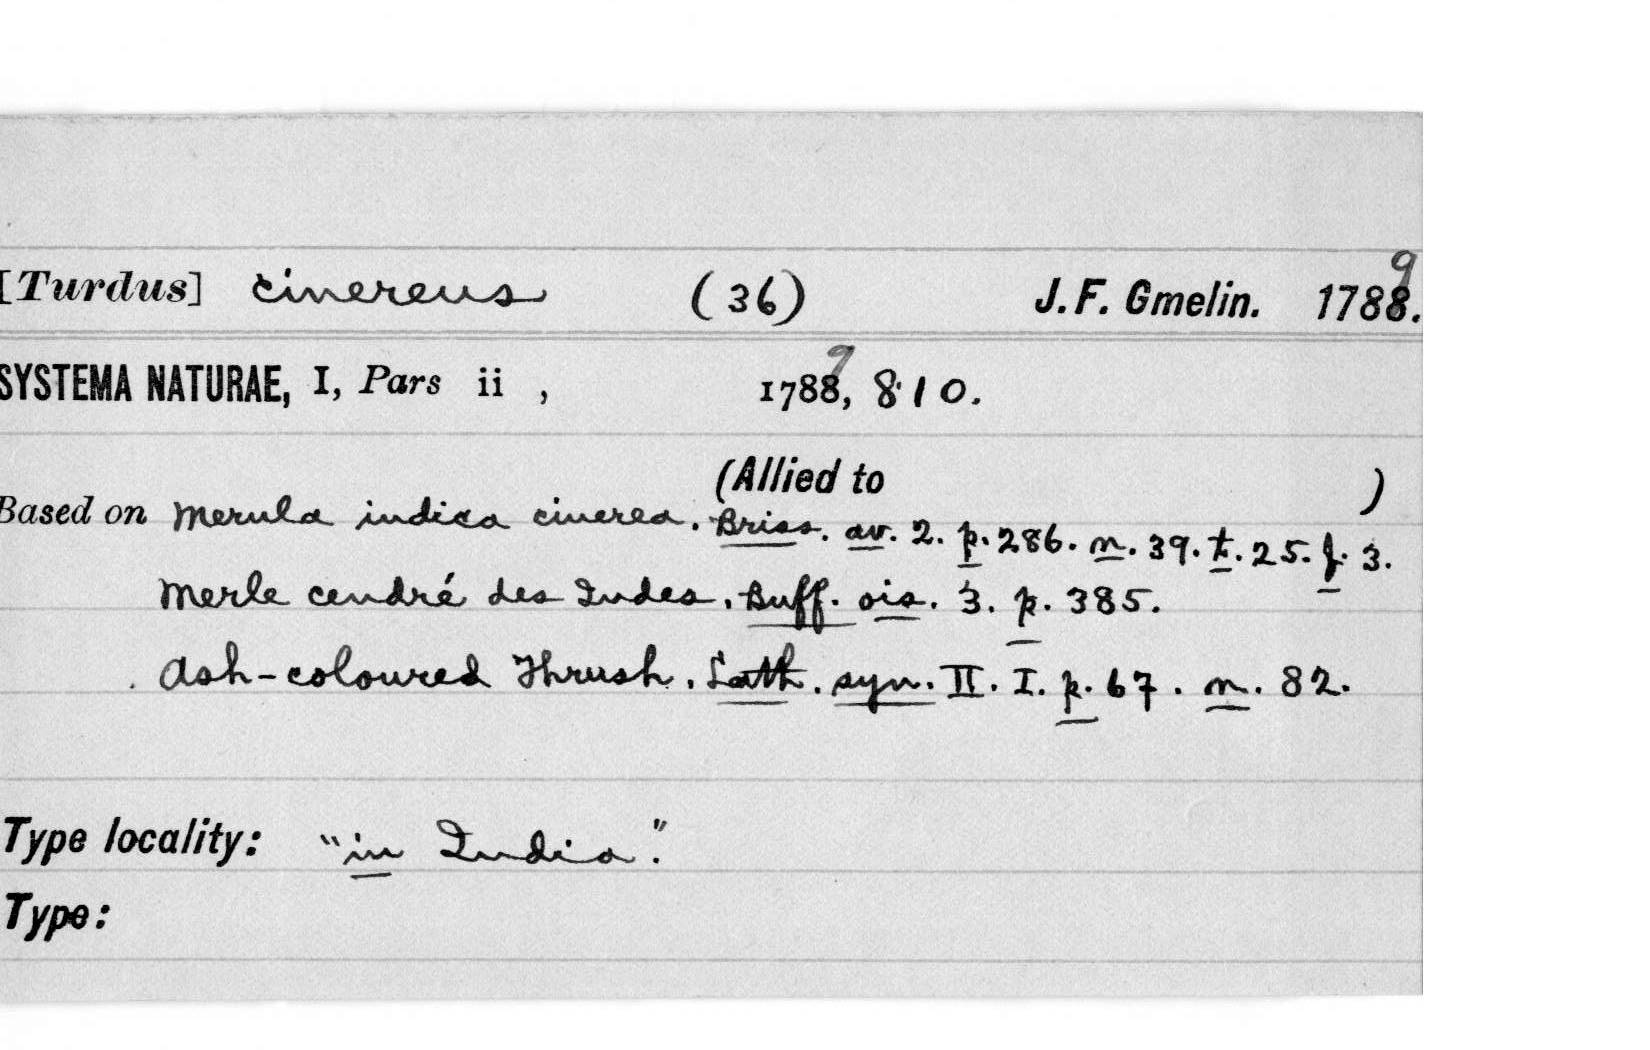 [Turdus] cinereus (36) J. F. Gmelin. 1788. 9
SYSTEMA NATURAE, I, Pars ii , 1788, 9 810.
(Allied to )
Based on Merula indica cinerea. Briss. av. 2. p. 286. n. 39. t. 25. f. 3.
Merle cendré des Indes. Buff. ois. 3. p. 385.
Ash-coloured Thrush. Lath. syn. II. I. p. 67. n. 82.
Type locality: "in India".
Type: